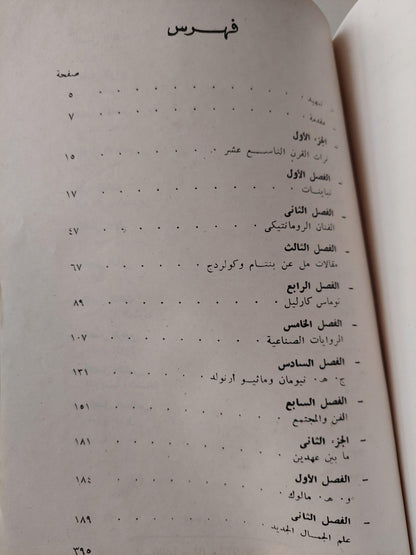 فهرس
صفحة
- تمهيد . . . . . . . . . . ٥
- مقدمة . . . . . . . . . . ٧
- الجزء الأول
تراث القرن التاسع عشر . . . . . . ١٥
- الفصل الأول
تباينات . . . . . . . . . ١٧
- الفصل الثانى
الفنان الرومانتيكى . . . . . . . ٤٧
- الفصل الثالث
مقالات مل عن بنتام وكولردج . . . . . ٦٧
- الفصل الرابع
توماس كارليل . . . . . . . . ٨٩
- الفصل الخامس
الروايات الصناعية . . . . . . . ١٠٧
- الفصل السادس
ج . هـ . نيومان وماثيو ارنولد . . . . . ١٣١
- الفصل السابع
الفن والمجتمع . . . . . . . . ١٥١
- الجزء الثانى
ما بين عهدين . . . . . . . . ١٨١
- الفصل الأول
و . هـ . مالوك . . . . . . . . ١٨٤
- الفصل الثانى
علم الجمال الجديد . . . . . . . ١٨٩
٣٩٥